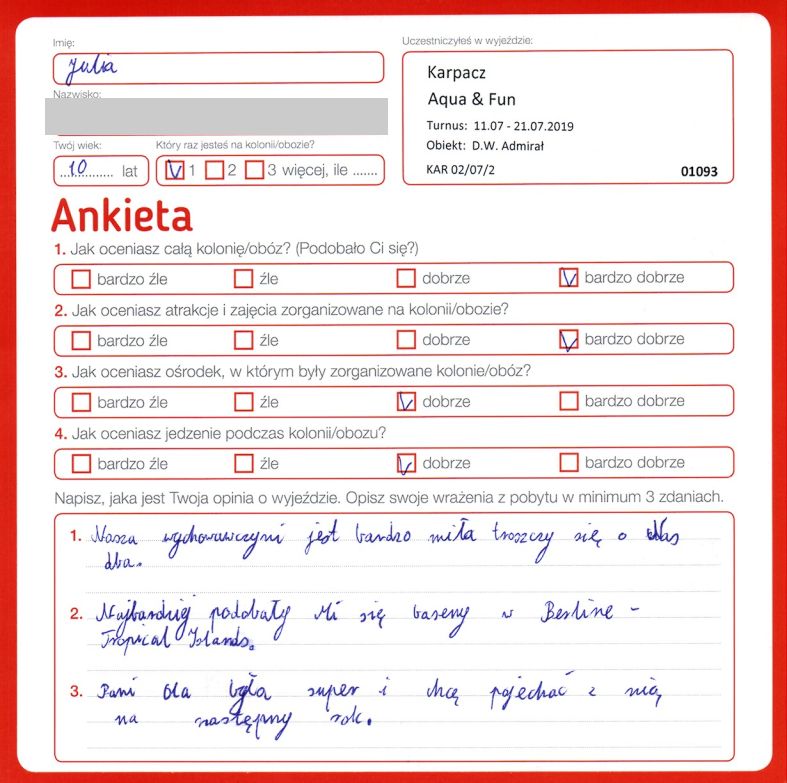 Imię:
Julia
Nazwisko:
Twój wiek:
10 lat
Który raz jesteś na kolonii/obozie?
1 2 3 więcej, ile .......
Uczestniczyłeś w wyjeździe:
Karpacz
Aqua & Fun
Turnus: 11.07 - 21.07.2019
Obiekt: D.W. Admirał
KAR 02/07/2 01093
Ankieta
1. Jak oceniasz całą kolonię/obóz? (Podobało Ci się?)
bardzo źle źle dobrze bardzo dobrze
2. Jak oceniasz atrakcje i zajęcia zorganizowane na kolonii/obozie?
bardzo źle źle dobrze bardzo dobrze
3. Jak oceniasz ośrodek, w którym były zorganizowane kolonie/obóz?
bardzo źle źle dobrze bardzo dobrze
4. Jak oceniasz jedzenie podczas kolonii/obozu?
bardzo źle źle dobrze bardzo dobrze
Napisz, jaka jest Twoja opinia o wyjeździe. Opisz swoje wrażenia z pobytu w minimum 3 zdaniach.
1. Nasza wychowawczyni jest bardzo miła troszczy się o Nas
dba.
2. Najbardziej podobały Mi się baseny w Berline -
Tropical Islands.
3. Pani Ola była super i chcę pojechać z nią
na następny rok.